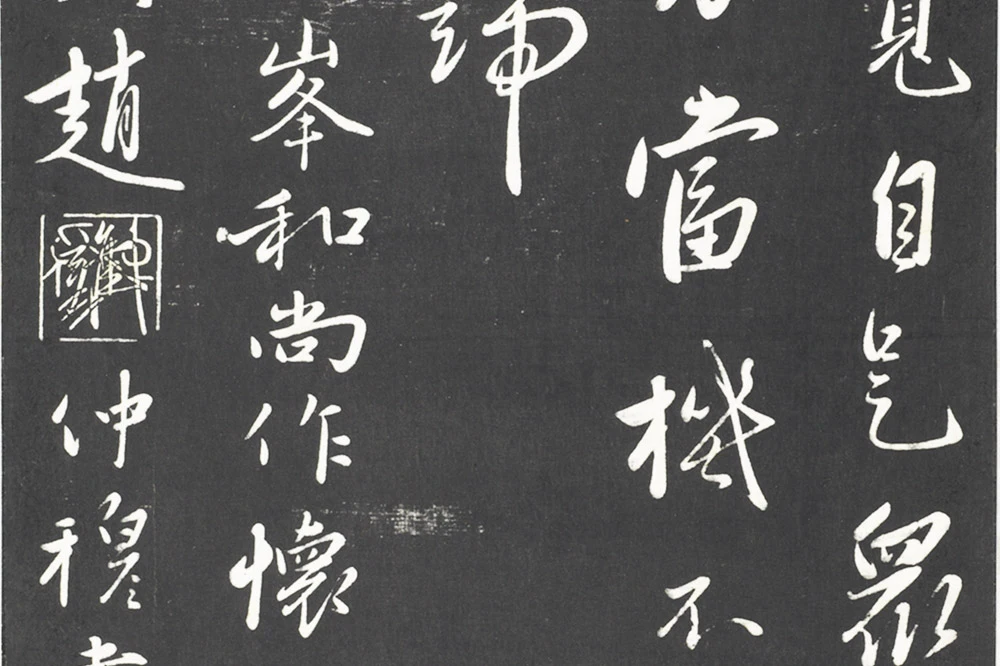 見自是眾
當機不
歸
峯和尚作懷
趙仲穆